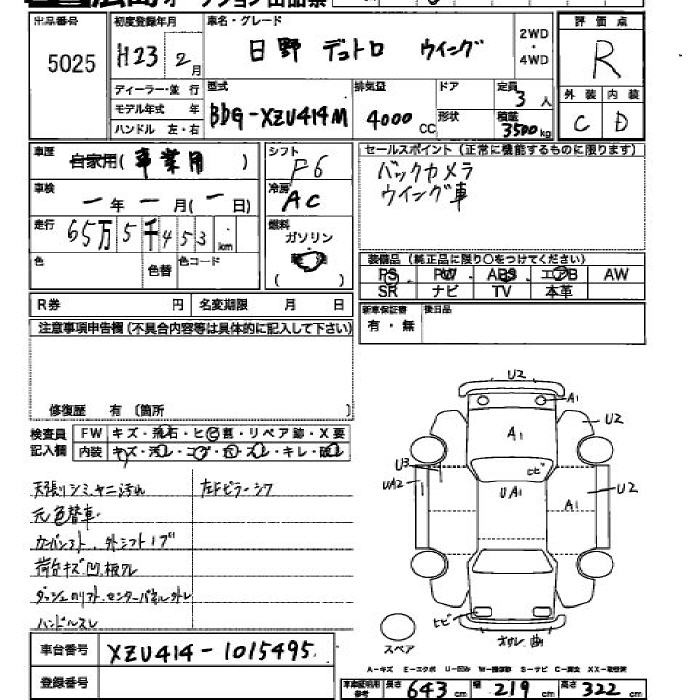 出品番号
5025
初度登録年月
H23 2月
車名・グレード
日野 デュトロ ウイング
2WD
・
4WD
評価点
R
外装 内装
C D
ディーラー・並行
モデル年式 年
ハンドル 左・右
型式
BDG-XZU414M
排気量
4000 CC
ドア
形状
定員
3 人
積載
3500kg
車歴
自家用( 事業用 )
車検
ー年ー月(ー日)
走行
65万5千453 km
色
色替
色コード
シフト
F6
冷房
AC
燃料
ガソリン
( )
セールスポイント(正常に機能するものに限ります)
バックカメラ
ウイング車
装備品(純正品に限り○をつけてください)
PS PW ABS エアB AW
SR ナビ TV 本革
R券 円 名変期限 月 日
新車保証書
有・無
後日品
注意事項申告欄(不具合内容等は具体的に記入して下さい)
修復歴 有 (箇所 )
検査員
記入欄
FW キズ・飛石・ヒビ割・リペア跡・X要
内装 キズ・汚レ・コゲ・穴・スレ・キレ・破レ
天張りシミ、ヤニ汚れ
左Fピラーシワ
元色替車
外シフト
荷台キズ、凹、板ワレ
ハンドルスレ
車台番号
XZU414-1015495
登録番号
U2
A1
U2
A1
ヒビ
U3
UA2
UA1
A1
U2
ヒビ
スペア
A-キズ E-エクボ U-凹み S-サビ C-腐食
車車証明用
参考
長さ 643 cm 幅 219 cm 高さ 322 cm